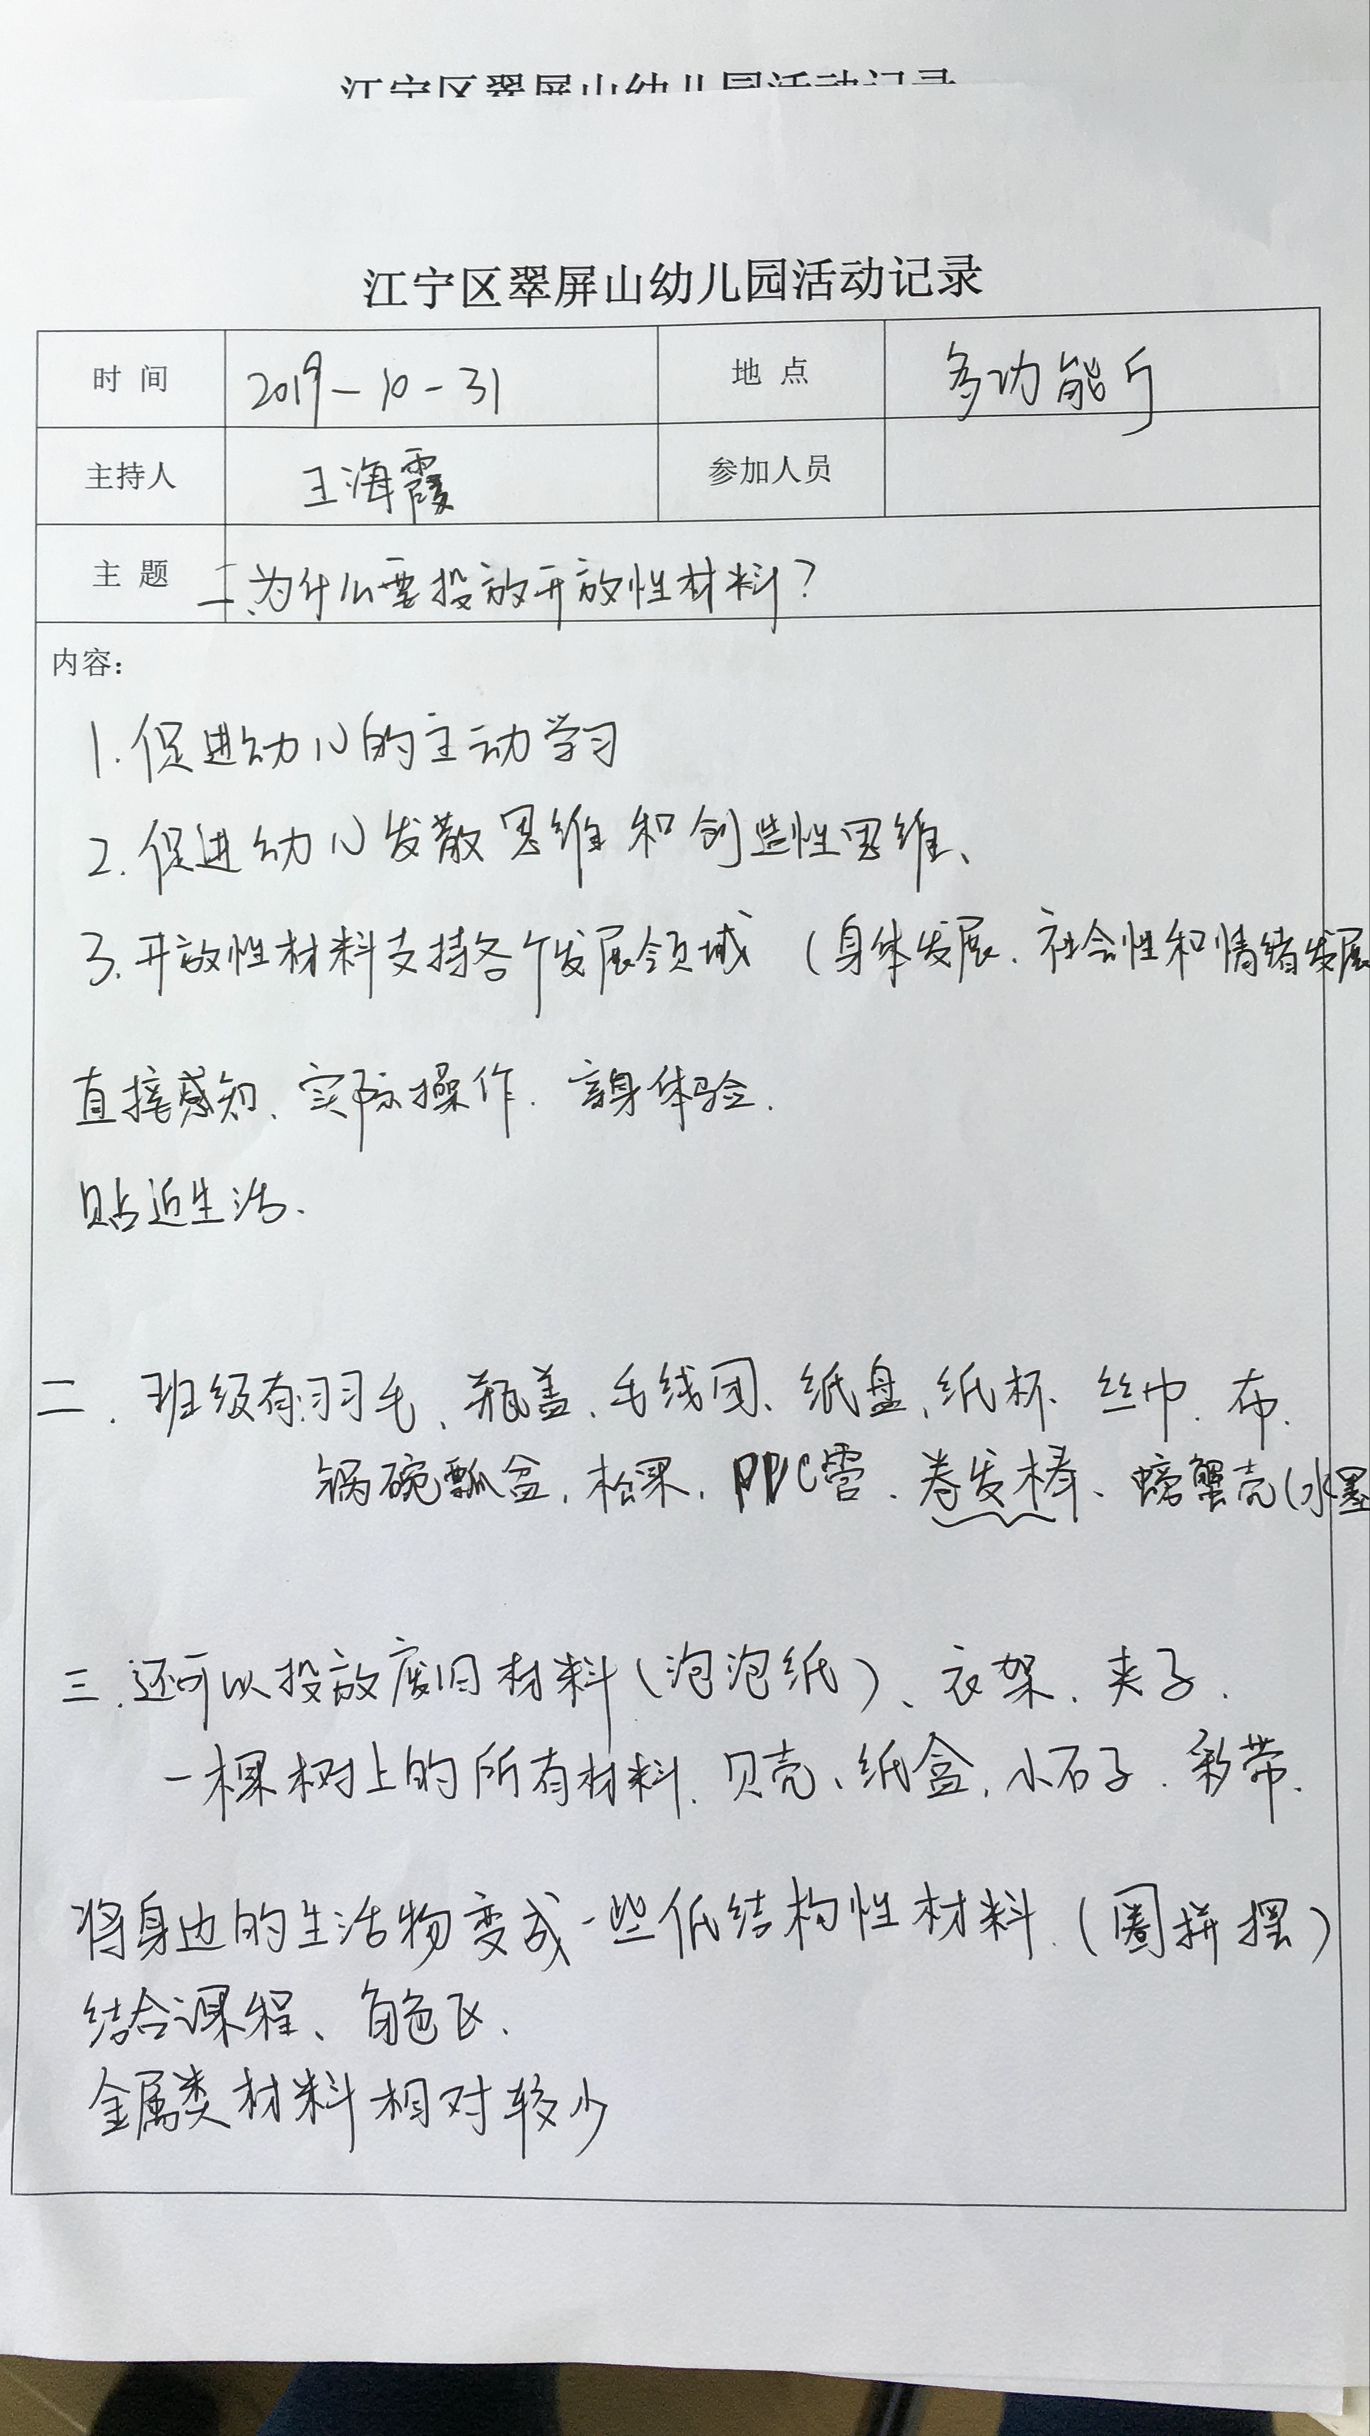 江宁区翠屏山幼儿园活动记录
江宁区翠屏山幼儿园活动记录
时 间 2019-10-31 地 点 多功能厅
主持人 王海霞 参加人员
主 题 一、为什么要投放开放性材料?
内容:
1.促进幼儿的主动学习
2.促进幼儿发散思维和创造性思维、
3.开放性材料支持各个发展领域 (身体发展、社会性和情绪发展
直接感知、实际操作、亲身体验.
贴近生活.
二、班级有:羽毛、瓶盖、毛线团、纸盘、纸杯、丝巾、布、
锅碗瓢盆、松果、PPC管、卷发棒、螃蟹壳(水墨
三、还可以投放废旧材料(泡泡纸)、衣架、夹子、
一棵树上的所有材料、贝壳、纸盒、小石子、彩带、
将身边的生活物变成一些低结构性材料.(圈拼摆)
结合课程、角色区、
金属类材料相对较少